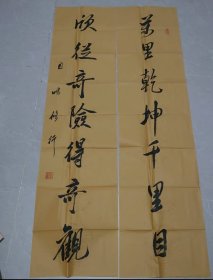 萬里乾坤千里目
欣從奇險得奇觀